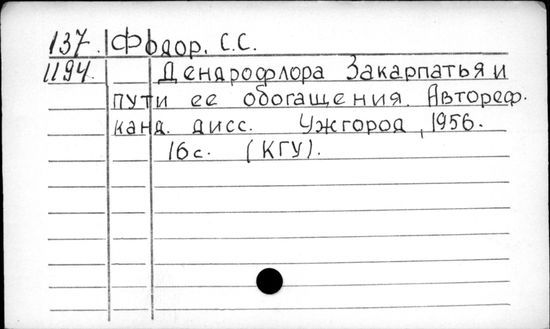 137. Фодор. С.С.
1194. Дендрофлора Закарпатья и
пути ее обогащения. Автореф.
канд. дисс. Ужгород, 1956.
16с. (КГУ).